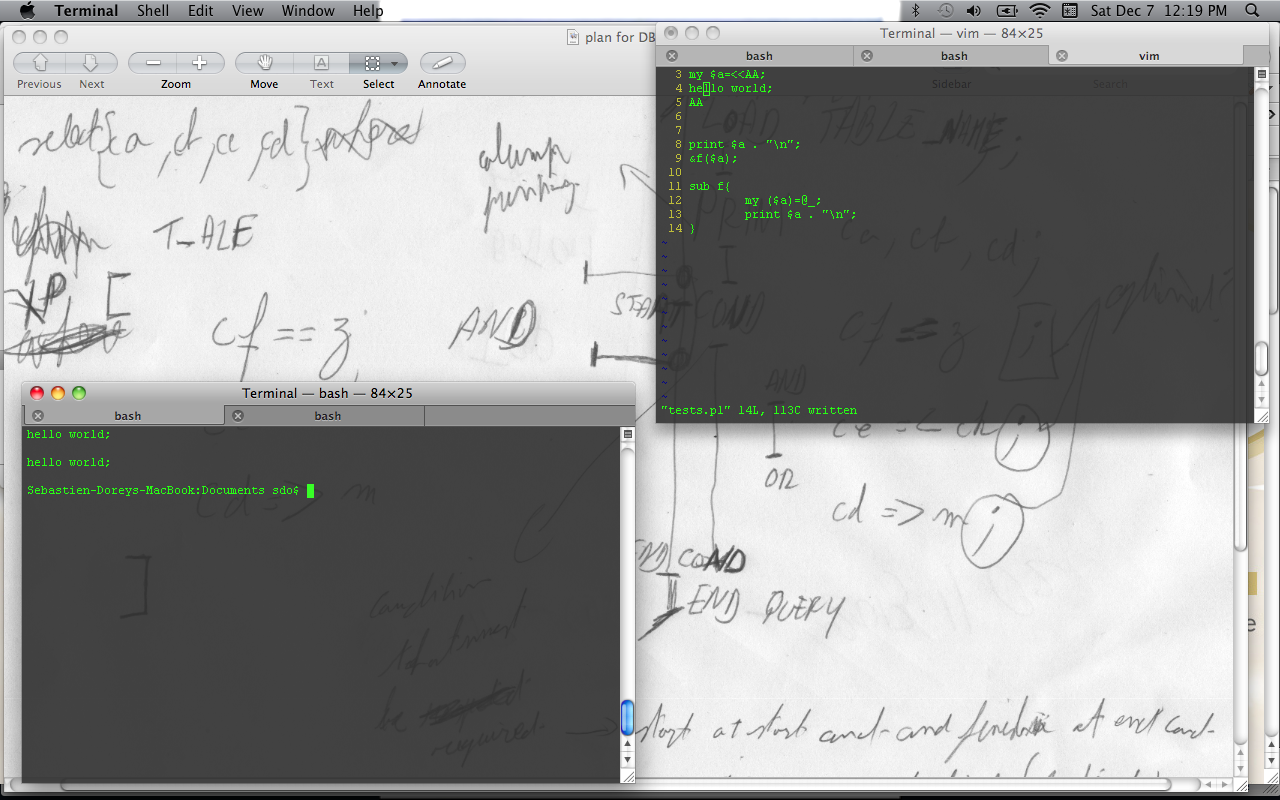 Terminal Shell Edit View Window Help Sat Dec 7 12:19 PM
plan for DB
Previous Next Zoom Move Text Select Annotate
Sidebar Search
select{ca, ct, ce, cd}
column
printing
T_ALE
[
cf == z
AND
START COND
LOAD TABLE_NAME;
PRINT ca, ct, cd;
cf == z
AND
OR
cd => m j
END COND
END QUERY
cd => m
]
condition
that must
be
required
start at start cond and finish at end cond
Terminal — vim — 84×25
bash bash vim
3 my $a=<<AA;
4 hello world;
5 AA
6
7
8 print $a . "\n";
9 &f($a);
10
11 sub f{
12 my ($a)=@_;
13 print $a . "\n";
14 }
~
~
~
~
~
~
~
~
~
~
~
"tests.pl" 14L, 113C written
Terminal — bash — 84×25
bash bash
hello world;
hello world;
Sebastien-Doreys-MacBook:Documents sdo$